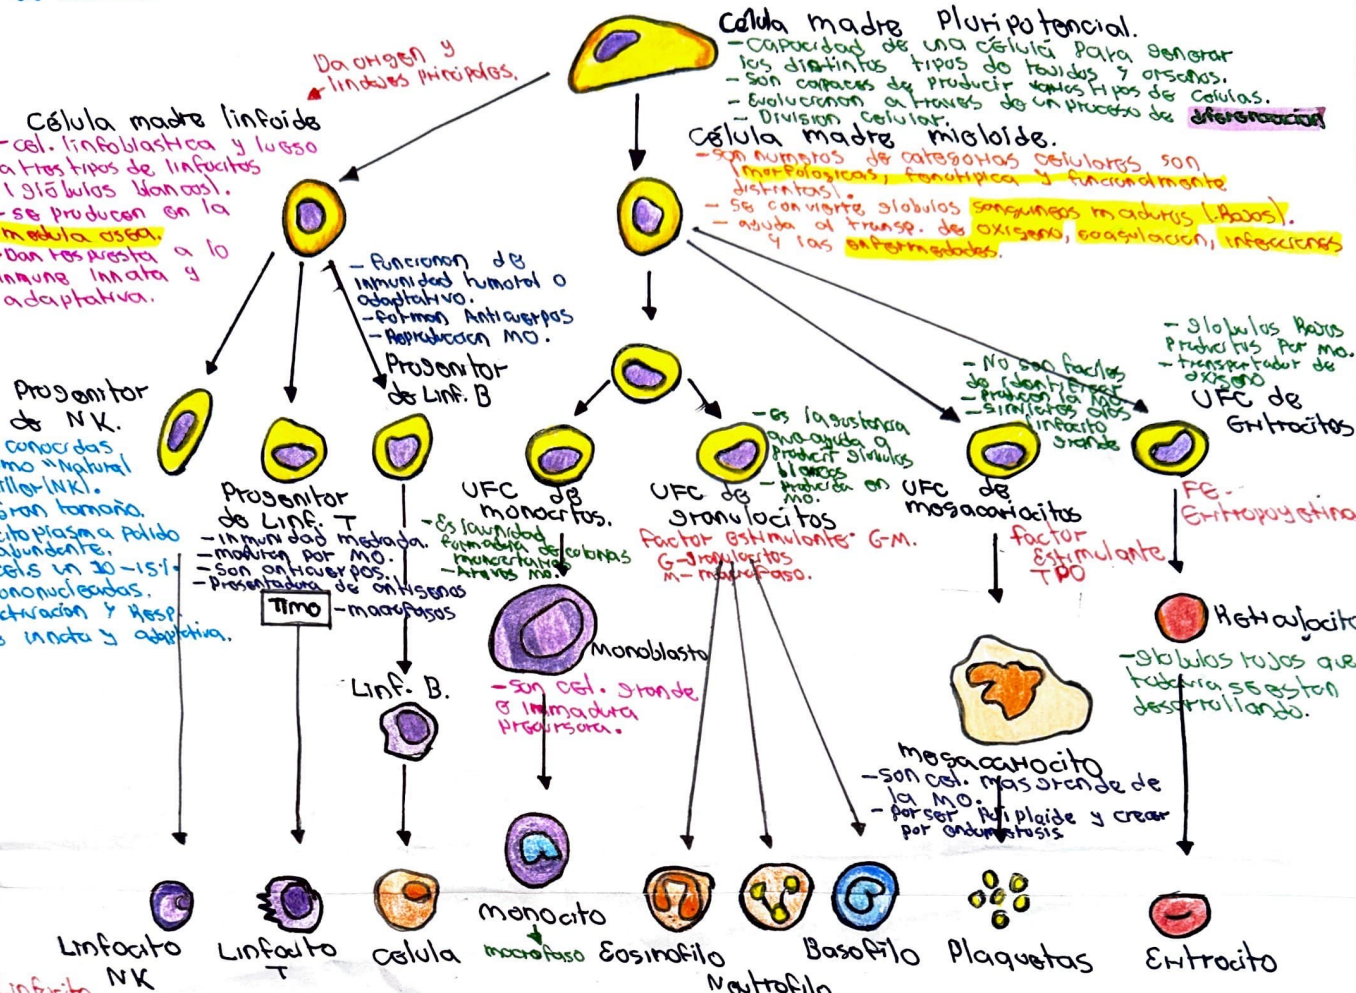 Célula madre Pluripotencial.
- Capacidad de una célula para generar
los distintos tipos de tejidos y organos.
- Son capaces de producir varios tipos de Celulas.
- Evolucionan a traves de un proceso de diferenciación
- Division celular.
Da origen y
lindajes principales.
Célula madre linfoide
- cel. linfoblastica y luego
a tres tipos de linfocitos
(glóbulos blancos).
- se producen en la
medula osea.
Dan respuesta a lo
inmune innata y
adaptativa.
Célula madre mieloide.
- son numeros de categorias celulares son
(morfologicas, fenotipica y funcionalmente
distintas).
- se convierte globulos sanguineos maduros (.Rojos).
- ayuda al transp. de oxigeno, coagulacion, infecciones
y las enfermedades.
- funcionan de
inmunidad humoral o
adaptativo.
- forman Anticuerpos
- Reproduccion MO.
Progenitor
de Linf. B
Progenitor
de NK.
conocidas
mo "Natural
iller (NK).
Gran tamaño.
citoplasma palido
abundante.
cels un 10-15%
mononucleadas.
activación y Resp.
innata y adaptativa.
Progenitor
de Linf. T
- inmunidad mediada.
- maduran por MO.
- Son anticuerpos.
- Presentadora de antigenos
- macrofagos
Timo
Linf. B.
UFC de
monocitos.
- Es la unidad
formadora de colonias
monocitarias
- Atraves MO.
Monoblasto
- son cel. grande
e inmadura
precursora.
UFC de
granulocitos
- es la sustancia
que ayuda a
producir globulos
blancos
- producida en
MO.
Factor estimulante G-M.
G-granulocitos
M- macrofago.
- No son faciles
de identificar
- producen la MO
- similares a los
linfocito
grande
UFC de
megacariocitos
factor
Estimulante
TPO
megacariocito
- son cel. mas grande de
la MO.
- Por ser poliploide y crear
por endomitosis
- globulos Rojos
Productos por MO.
- transportador de
oxigeno
UFC de
Eritrocitos
FE-
Eritropoyetina
Reticulocito
- globulos rojos que
todavia se estan
desarrollando.
Linfocito
NK
Linfocito
T
Celula
monocito
macrofago
Eosinofilo
Neutrofilo
Basofilo
Plaquetas
Eritrocito
Linfocito